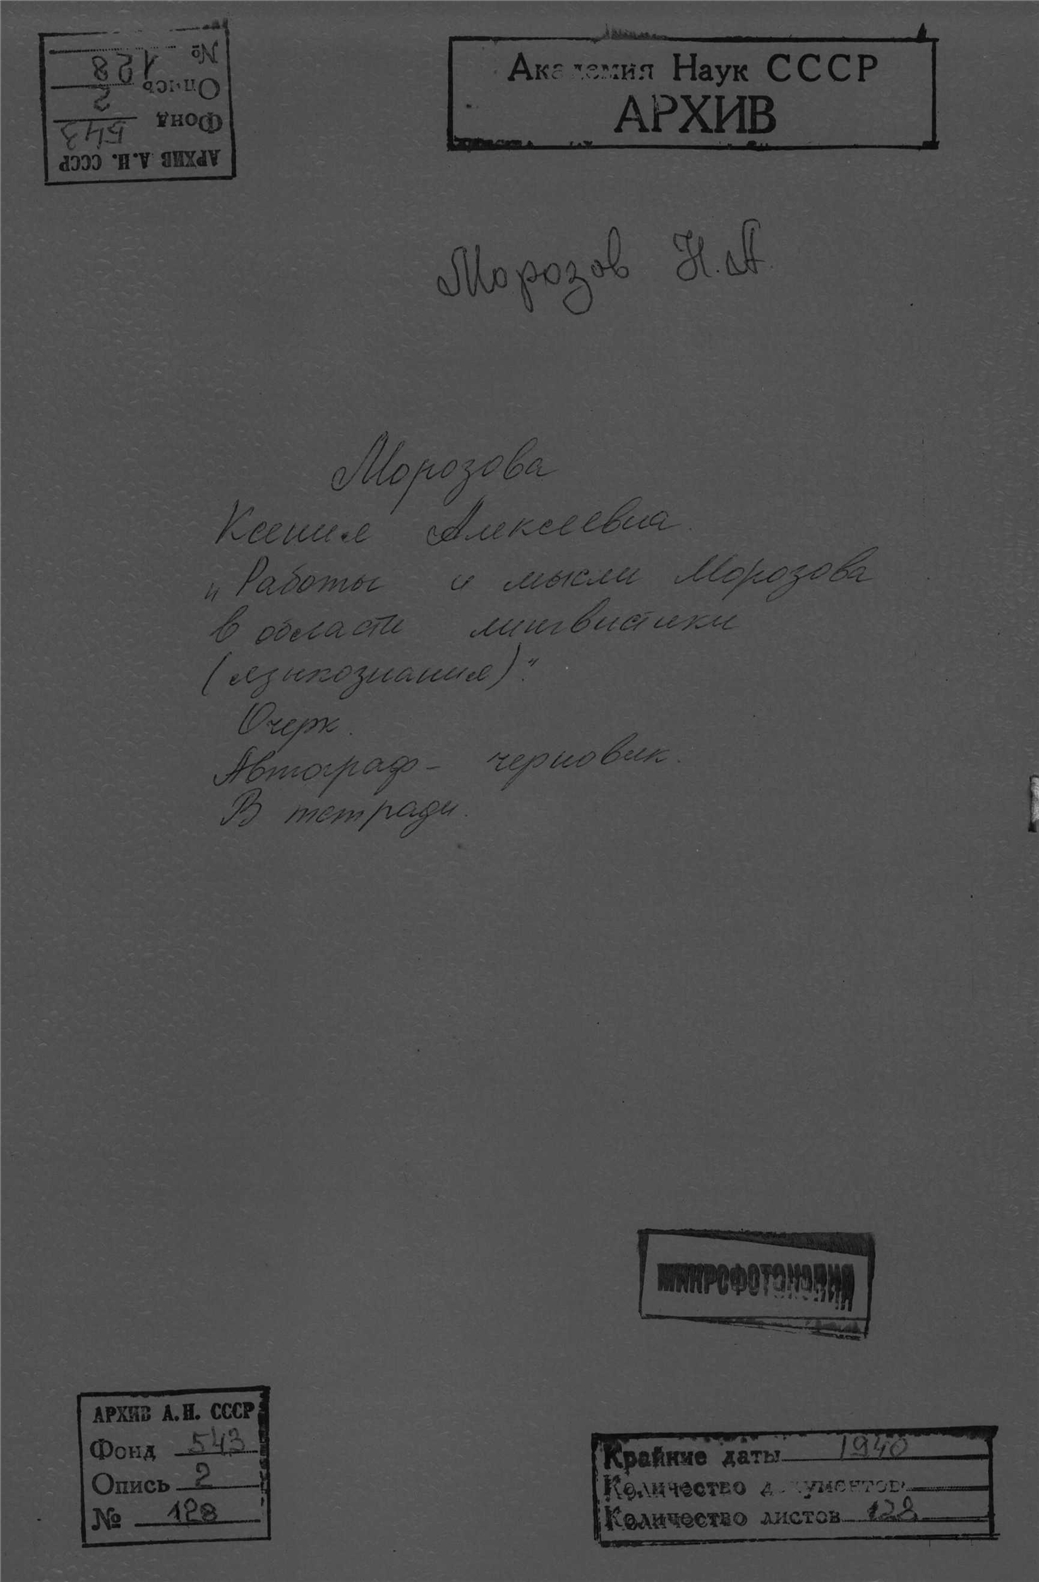 АРХИВ А.Н. СССР
Фонд 543
Опись 2
№ 128
Академия Наук СССР
АРХИВ
Морозов Н.А.
Морозова
Ксения Алексеевна.
„Работы и мысли Морозова
в области лингвистики
(языкознания)".
Очерк.
Автограф - черновик.
В тетради.
МИКРОФОТОКОПИЯ
АРХИВ А.Н. СССР
Фонд 543
Опись 2
№ 128
Крайние даты 1940
Количество документов
Количество листов 128